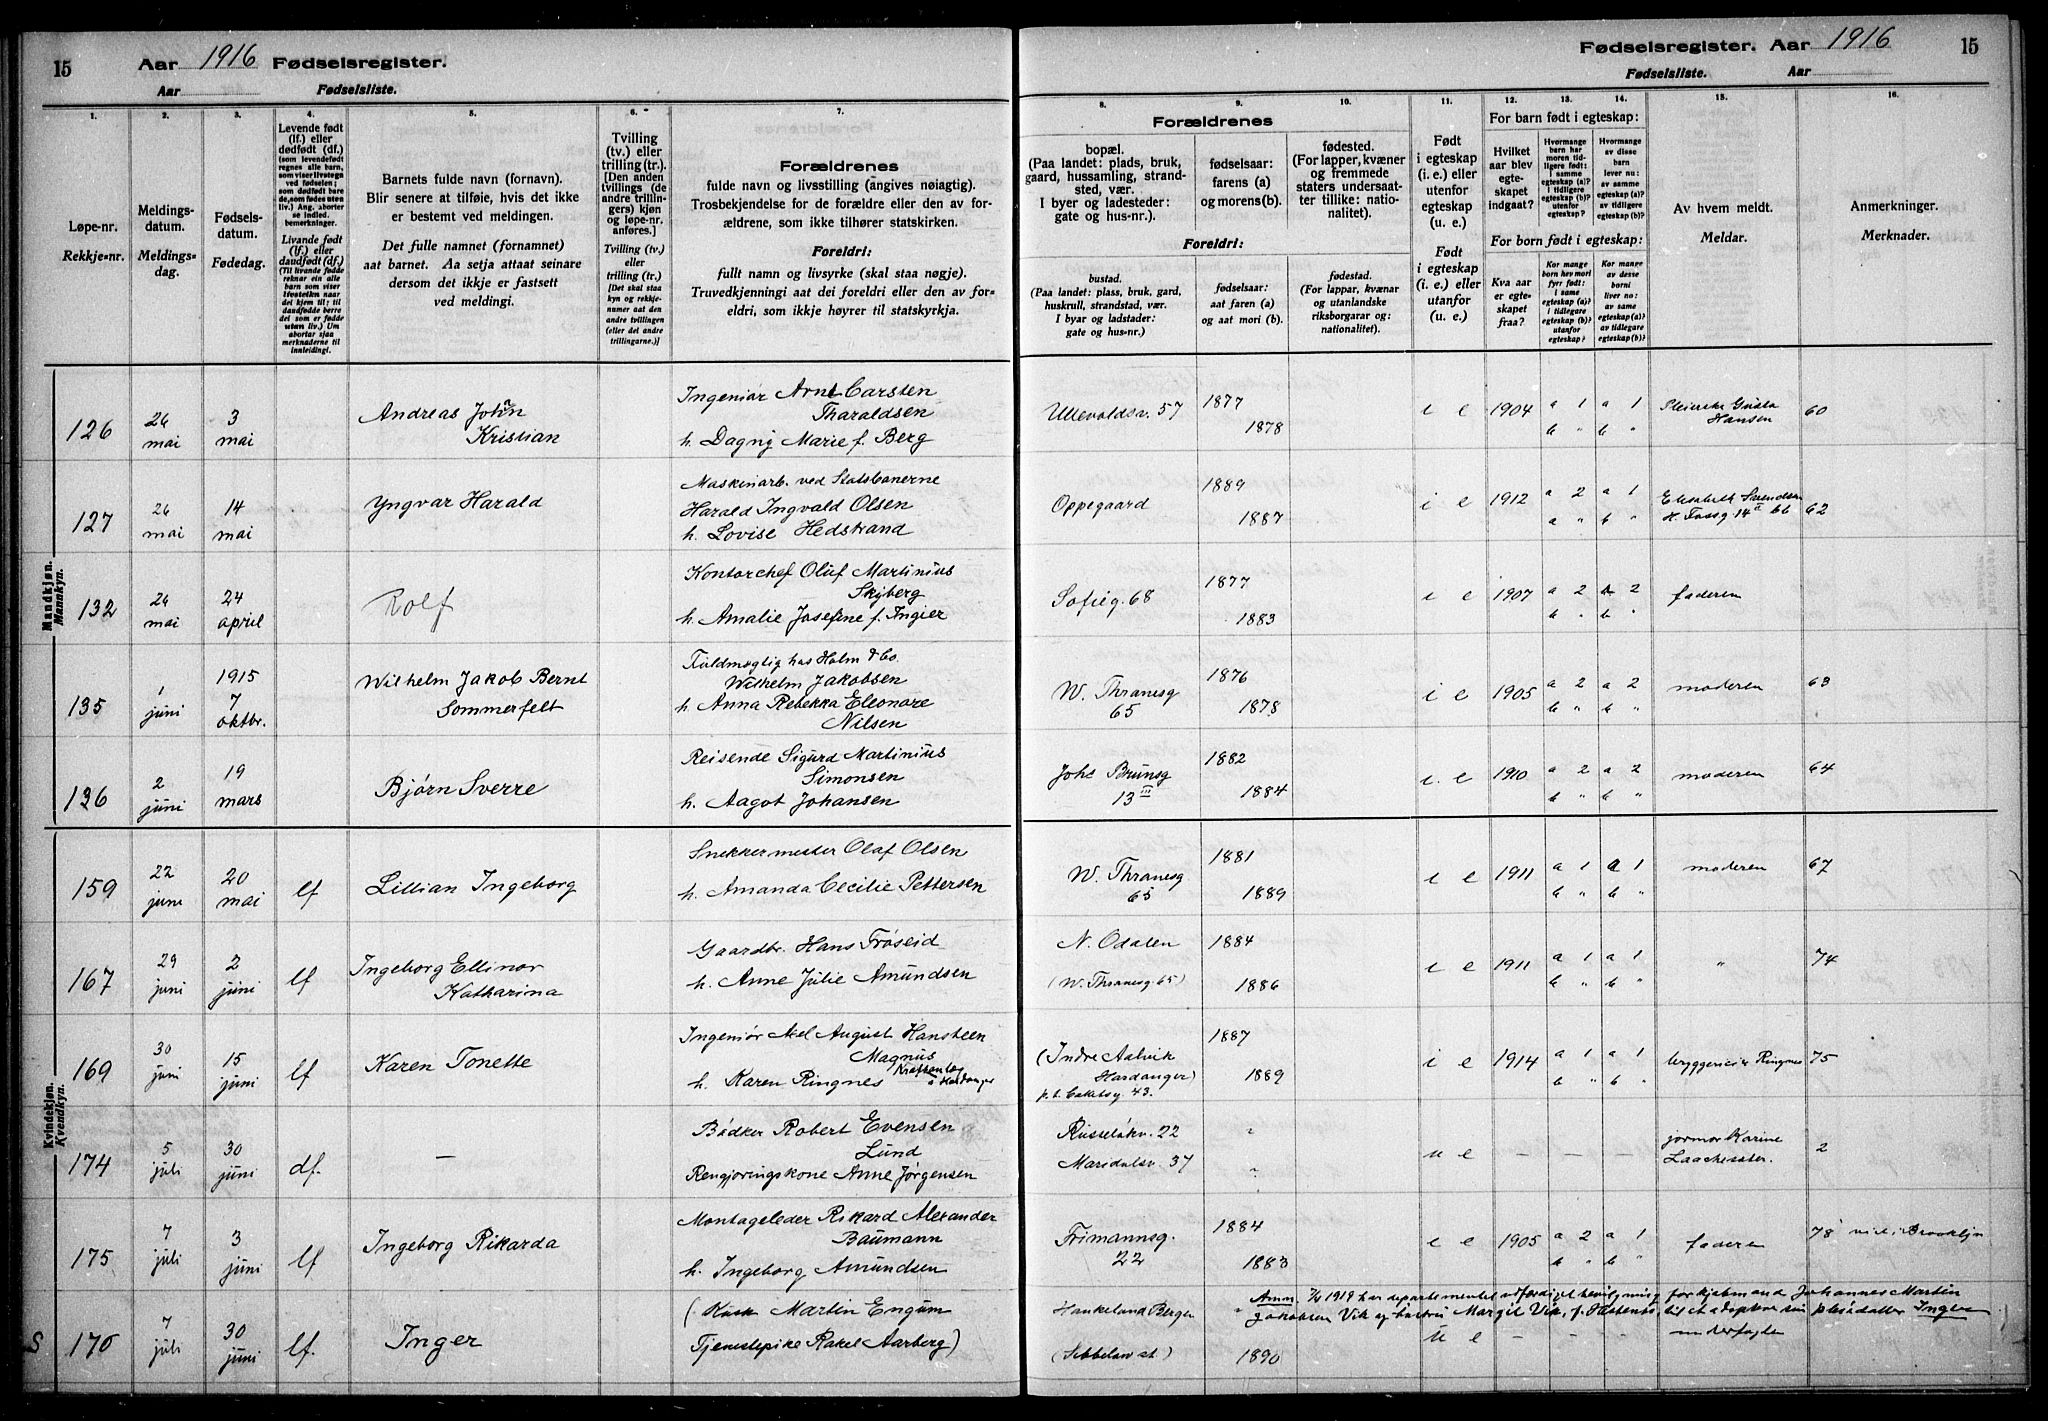 15 Aar 1916 Fødselsregister.
Aar Fødselsliste.
Fødselsregister. Aar 1916 15
Fødselsliste. Aar
1. 2. 3. 4. 5. 6. 7.
Løpe-nr.
Rekkje-nr.
Meldings-
datum.
Meldings-
dag.
Fødsels-
datum.
Fødedag.
Levende født
(lf.) eller
dødfødt (df.)
(som levendefødt
regnes alle barn,
som viser livstegn
ved fødselen;
som dødfødt bare
de, som fødes uten
liv.) Ang. aborter
se indled.
bemerkninger.
Livande født
(lf.) eller
daudfødt (df.)
(Til livande fødde
reknar ein alle
barn som viser
livsteikn naar
det kjem til; til
daudfødde berre
dei som er fødde
utan liv.) Um
abortar sjaa
merknaderne til
innleidingi.
Barnets fulde navn (fornavn).
Blir senere at tilføie, hvis det ikke
er bestemt ved meldingen.
Det fulle namnet (fornamnet)
aat barnet. Aa setja attaat seinare
dersom det ikkje er fastsett
ved meldingi.
Tvilling
(tv.) eller
trilling (tr.).
[Den anden
tvillings (de
andre trillin-
gers) kjøn
og løpe-nr.
anføres.]
Tvilling (tv.)
eller
trilling (tr.)
[Det skal staa
kyn og rekkje-
numer aat den
andre tvillingen
(eller dei andre
trillingarne.)]
Forældrenes
fulde navn og livsstilling (angives nøiagtig).
Trosbekjendelse for de forældre eller den av for-
ældrene, som ikke tilhører statskirken.
Foreldri:
fullt namn og livsyrke (skal staa nøgje).
Truvedkjenningi aat dei foreldri eller den av for-
eldri, som ikkje høyrer til statskyrkja.
8. 9. 10. 11. 12. 13. 14. 15. 16.
Forældrenes
bopæl.
(Paa landet: plads, bruk,
gaard, hussamling, strand-
sted, vær.
I byer og ladesteder:
gate og hus-nr.).
fødselsaar:
farens (a)
og morens (b).
fødested.
(For lapper, kvæner
og fremmede
staters undersaat-
ter tillike: natio-
nalitet).
Foreldri:
bustad.
(Paa landet: plass, bruk, gard,
huskrull, strandstad, vær.
I byar og ladstader:
gate og hus-nr.)
fødselsaar:
aat faren (a)
og aat mori (b).
fødestad.
(For lappar, kvænar
og utanlandske
riksborgarar og
nationalitet).
Født
i egteskap
(i. e.) eller
utenfor
egteskap
(u. e.)
Født
i egteskap
(i. e.) eller
utanfor
(u. e.)
For barn født i egteskap:
Hvilket
aar blev
egte-
skapet
indgaat?
Hvormange
barn har
moren tid-
ligere født:
i samme
egteskap (a)?
i tidligere
egteskap (b)?
utenfor
egteskap?
Hvormange
av disse
barn
lever nu:
av samme
egteskap (a)?
av tidligere
egteskap (b)?
For born født i egteskap:
Kva aar
er egte-
skapet
fraa?
Kor mange
born hev mori
fyrr født:
i same
egteskap (a)?
i tidlegare
egteskap (b)?
utanfor
egteskap?
Kor mange
av desse
borni
liver no:
av same
egteskap (a)?
av tidlegare
egteskap (b)?
Av hvem meldt.
Meldar.
Anmerkninger.
Merknader.
Mandkjøn.
Mannkyn.
126 26 mai 3 mai Andreas Johan Kristian
Ingeniør Arne Carsten
Tharaldsen
h. Dagny Marie f. Berg
Ullevoldsv. 57 1877 1878 i e 1904 a 1 a 1 Gusta Hansen 60
b " b "
127 26 mai 14 mai Yngvar Harald
Maskinarb. ved Statsbanerne
Harald Ingvald Olsen
h. Lovise Hedstrand
Oppegaard 1889 1887 i e 1912 a 2 a 1 Elisabeth Svendsen 62
132 26 mai 24 april Rolf
Kontorchef Oluf Martinius
Skyberg
h. Amalie Josefine f. Ingier
Sofieg. 68 1877 1883 i e 1907 a 2 a 2 faderen
b " b "
135 1 juni 1915 7 oktbr. Wilhelm Jakob Bernt
Sommerfelt
Fuldmægtig hos Holm & Co.
Wilhelm Jakobsen
h. Anna Rebekka Eleonore
Nilsen
W. Thranesg 65 1876 1878 i e 1905 a 2 a 2 moderen 63
b " b "
136 2 juni 19 mars Bjørn Sverre
Reisende Sigurd Martinius
Simonsen
h. Aagot Johansen
Johs Brunsg 13 III 1882 1884 i e 1910 a 2 a 2 moderen 64
b " b "
Kvindekjøn.
Kvendkyn.
159 22 juni 20 mai lf Lillian Ingeborg
Snekkermester Olaf Olsen
h. Amanda Cecilie Pettersen
W. Thranesg 65 1881 1889 i e 1911 a 1 a 1 moderen 67
b " b "
167 29 juni 2 juni lf Ingeborg Ellinor
Katharina
Gaardbr. Hans Trøseid
h. Anne Julie Amundsen
N. Odalen (W. Thranesg. 65) 1884 1886 i e 1911 a 1 a 1 " 74
b " b "
169 30 juni 15 juni lf Karen Tonette
Ingeniør Axel August Hansteen
Magnus
h. Karen Ringnes
(Indre Aalvik
Hardanger)
1887 1889 i e 1914 a 1 a 1 Ringnes 75
b " b "
174 5 juli 30 juni df. —
Bødker Robert Evensen
Lund
Rengjøringskone Anne Jørgensen
Russeløkv. 22 "
Maridalsv. 37 "
u e — — — jormor Karine 2
175 7 juli 3 juni lf Ingeborg Rikarda
Montageleder Rikard Alexander
Baumann
h. Ingeborg Amundsen
Frimannsg. 22 1884 1883 i e 1905 a 2 a 1 faderen 78 viet i Brooklyn
b " b "
S 176 7 juli 30 juni lf. Inger
( Martin Engum
Tjenestepike Rakel Aarberg)
Haukeland Bergen "
1890
Anm. 1919 har departementet utfærdiget bevilgning for kjøbmand Johannes Martin
Jakobsen Vik og hustru Margit Vik, til at adoptere sin pleiedatter Inger
u e — — —